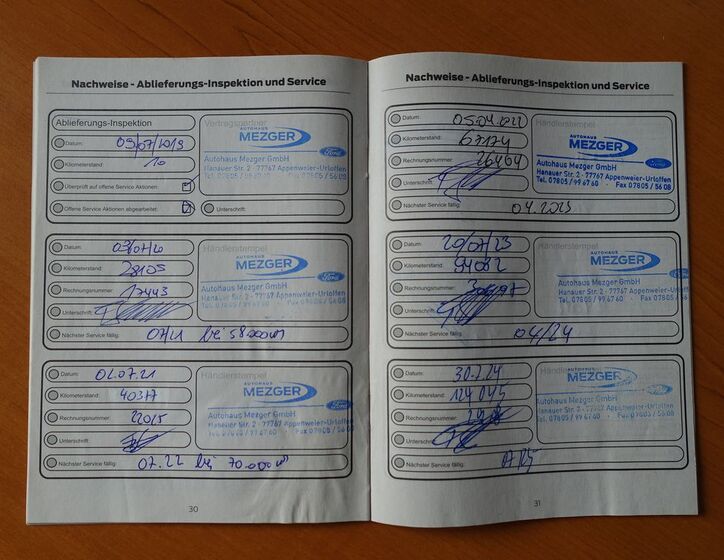 Nachweise - Ablieferungs-Inspektion und Service
Ablieferungs-Inspektion
Datum: 09/07/2019
Kilometerstand: 10
Überprüft auf offene Service Aktionen:
Offene Service Aktionen abgearbeitet:
Vertragspartner
AUTOHAUS
MEZGER
Ford
Autohaus Mezger GmbH
Hanauer Str. 2 - 77767 Appenweier-Urloffen
Tel. 07805 / 99 67 60 · Fax 07805 / 56 08
Unterschrift:
Datum: 09/07/20
Kilometerstand: 28105
Rechnungsnummer: 17443
Unterschrift:
Händlerstempel
AUTOHAUS
MEZGER
Ford
Autohaus Mezger GmbH
Hanauer Str. 2 - 77767 Appenweier-Urloffen
Tel. 07805 / 99 67 60 · Fax 07805 / 56 08
Nächster Service fällig: 07/21 bei 58.000 km
Datum: 02.07.21
Kilometerstand: 40377
Rechnungsnummer: 22015
Unterschrift:
Händlerstempel
AUTOHAUS
MEZGER
Ford
Autohaus Mezger GmbH
Hanauer Str. 2 - 77767 Appenweier-Urloffen
Tel. 07805 / 99 67 60 · Fax 07805 / 56 08
Nächster Service fällig: 07.22 bei 70.000 km
30
Nachweise - Ablieferungs-Inspektion und Service
Datum: 05.04.2022
Kilometerstand: 67174
Rechnungsnummer: 26464
Händlerstempel
AUTOHAUS
MEZGER
Ford
Autohaus Mezger GmbH
Hanauer Str. 2 - 77767 Appenweier-Urloffen
Tel. 07805 / 99 67 60 · Fax 07805 / 56 08
Nächster Service fällig: 04.2023
Datum: 20/07/23
Kilometerstand: 94082
Rechnungsnummer:
Unterschrift:
Händlerstempel
AUTOHAUS
MEZGER
Ford
Autohaus Mezger GmbH
Hanauer Str. 2 - 77767 Appenweier-Urloffen
Tel. 07805 / 99 67 60 · Fax 07805 / 56 08
Nächster Service fällig: 04/24
Datum: 30.7.24
Kilometerstand: 124045
Rechnungsnummer:
Unterschrift:
Händlerstempel
AUTOHAUS
MEZGER
Ford
Autohaus Mezger GmbH
Hanauer Str. 2 - 77767 Appenweier-Urloffen
Tel. 07805 / 99 67 60 · Fax 07805 / 56 08
Nächster Service fällig:
31